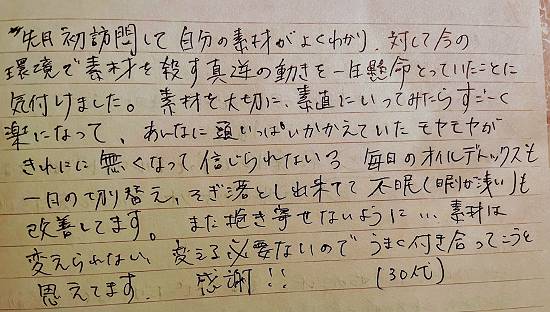 先月初訪問して自分の素材がよくわかり、対して今の
環境で素材を殺す真逆の動きを一生懸命とっていたことに
気付けました。素材を大切に、素直にいってみたらすごーく
楽になって、あんなに頭いっぱいかかえていたモヤモヤが
きれいに無くなって信じられない 毎日のオイルデトックスも
一日の切り替え、そぎ落とし出来てて不眠(眠りが浅い)も
改善してます。また抱き寄せないように… 素材は
変えられない、変える必要ないのでうまく付き合ってこうと
思えてます。 感謝!! (30代)